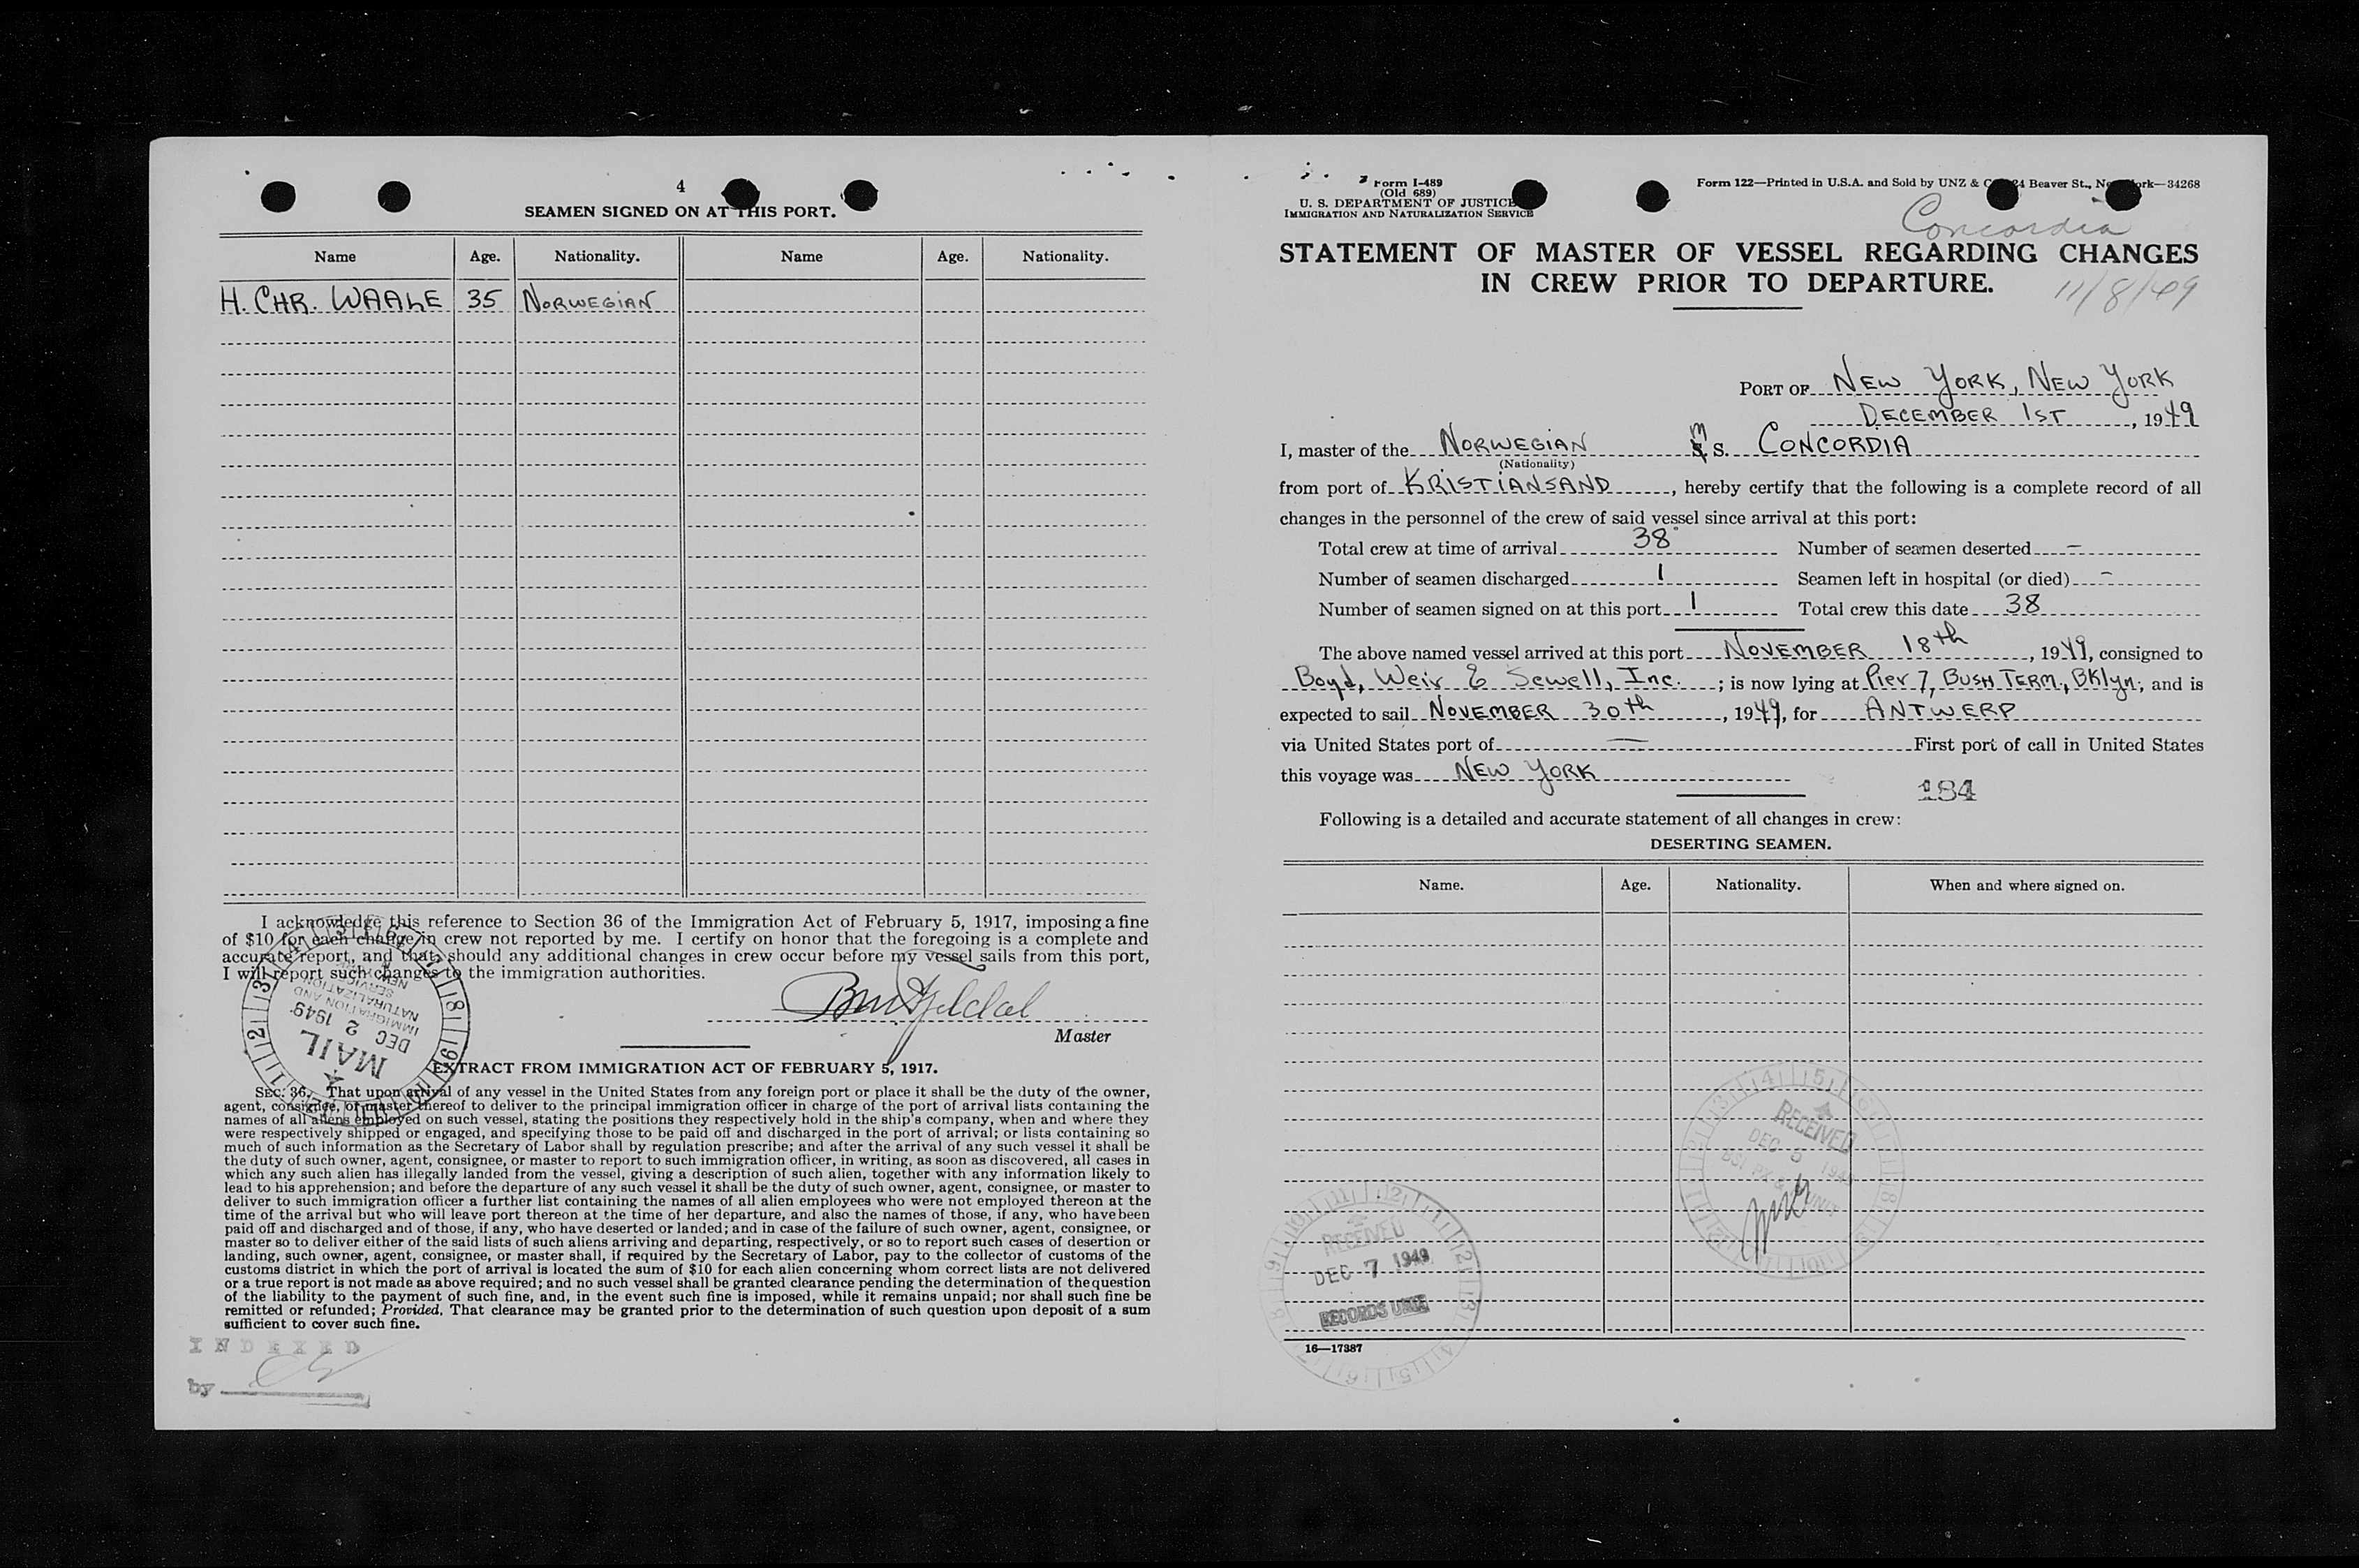 4
SEAMEN SIGNED ON AT THIS PORT.
Name Age. Nationality. Name Age. Nationality.
H. CHR. WAALE 35 NORWEGIAN
I acknowledge this reference to Section 36 of the Immigration Act of February 5, 1917, imposing a fine
of $10 for each change in crew not reported by me. I certify on honor that the foregoing is a complete and
accurate report, and that should any additional changes in crew occur before my vessel sails from this port,
I will report such changes to the immigration authorities.
Master
MAIL
DEC 2 1949
IMMIGRATION AND
NATURALIZATION
SERVICE
EXTRACT FROM IMMIGRATION ACT OF FEBRUARY 5, 1917.
SEC. 36. That upon arrival of any vessel in the United States from any foreign port or place it shall be the duty of the owner,
agent, consignee, or master thereof to deliver to the principal immigration officer in charge of the port of arrival lists containing the
names of all aliens employed on such vessel, stating the positions they respectively hold in the ship's company, when and where they
were respectively shipped or engaged, and specifying those to be paid off and discharged in the port of arrival; or lists containing so
much of such information as the Secretary of Labor shall by regulation prescribe; and after the arrival of any such vessel it shall be
the duty of such owner, agent, consignee, or master to report to such immigration officer, in writing, as soon as discovered, all cases in
which any such alien has illegally landed from the vessel, giving a description of such alien, together with any information likely to
lead to his apprehension; and before the departure of any such vessel it shall be the duty of such owner, agent, consignee, or master to
deliver to such immigration officer a further list containing the names of all alien employees who were not employed thereon at the
time of the arrival but who will leave port thereon at the time of her departure, and also the names of those, if any, who have been
paid off and discharged and of those, if any, who have deserted or landed; and in case of the failure of such owner, agent, consignee, or
master so to deliver either of the said lists of such aliens arriving and departing, respectively, or so to report such cases of desertion or
landing, such owner, agent, consignee, or master shall, if required by the Secretary of Labor, pay to the collector of customs of the
customs district in which the port of arrival is located the sum of $10 for each alien concerning whom correct lists are not delivered
or a true report is not made as above required; and no such vessel shall be granted clearance pending the determination of the question
of the liability to the payment of such fine, and, in the event such fine is imposed, while it remains unpaid; nor shall such fine be
remitted or refunded; Provided, That clearance may be granted prior to the determination of such question upon deposit of a sum
sufficient to cover such fine.
INDEXED
by
Form I-489
(Old 689)
U. S. DEPARTMENT OF JUSTICE
IMMIGRATION AND NATURALIZATION SERVICE
Form 122—Printed in U.S.A. and Sold by UNZ & Co., 24 Beaver St., New York—34268
Concordia
STATEMENT OF MASTER OF VESSEL REGARDING CHANGES
IN CREW PRIOR TO DEPARTURE.
11/8/49
PORT OF NEW YORK, NEW YORK
DECEMBER 1ST, 1949
I, master of the NORWEGIAN M S. CONCORDIA
(Nationality)
from port of KRISTIANSAND, hereby certify that the following is a complete record of all
changes in the personnel of the crew of said vessel since arrival at this port:
Total crew at time of arrival 38 Number of seamen deserted —
Number of seamen discharged 1 Seamen left in hospital (or died) —
Number of seamen signed on at this port 1 Total crew this date 38
The above named vessel arrived at this port NOVEMBER 18th, 1949, consigned to
Boyd, Weir & Sewell, Inc.; is now lying at Pier 7, BUSH TERM., BKlyn, and is
expected to sail NOVEMBER 30th, 1949, for ANTWERP
via United States port of — First port of call in United States
this voyage was NEW YORK
184
Following is a detailed and accurate statement of all changes in crew:
DESERTING SEAMEN.
Name. Age. Nationality. When and where signed on.
RECEIVED
DEC 5 1949
RECEIVED
DEC 7 1949
RECORDS UNIT
16—17387